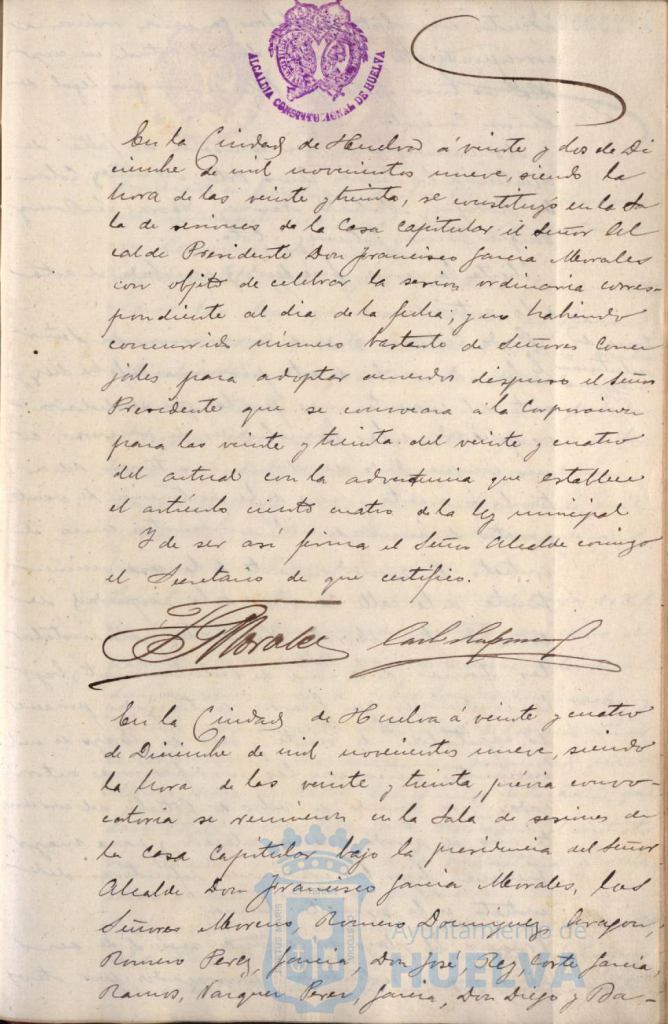 ALCALDIA CONSTITUCIONAL DE HUELVA
En la Ciudad de Huelva á veinte y dos de Di
ciembre de mil novecientos nueve, siendo la
hora de las veinte y treinta, se constituyó en la Sa
la de sesiones de la Casa Capitular el Señor Al
calde Presidente Don Francisco García Morales
con objeto de celebrar la sesion ordinaria corres
pondiente al dia de la fecha; y no habiendo
concurrido número bastante de Señores Conce
jales para adoptar acuerdos dispuso el Señor
Presidente que se convocara á la Corporacion
para las veinte y treinta del veinte y cuatro
del actual con la advertencia que establece
el artículo ciento cuatro de la ley municipal
Y de ser así firma el Señor Alcalde conmigo
el Secretario de que certifico.
F G Morales
En la Ciudad de Huelva á veinte y cuatro
de Diciembre de mil novecientos nueve, siendo
la hora de las veinte y treinta, prévia convo-
catoria se reunieron en la Sala de sesiones de
la Casa Capitular bajo la presidencia del Señor
Alcalde Don Francisco García Morales, los
Señores Moreno, Romero Dominguez, Aragon,
Romero Perez, García, Don José, Rey, Corte García,
Ramos, Vazquez Perez, García, Don Diego y Ba-
Ayuntamiento de
HUELVA